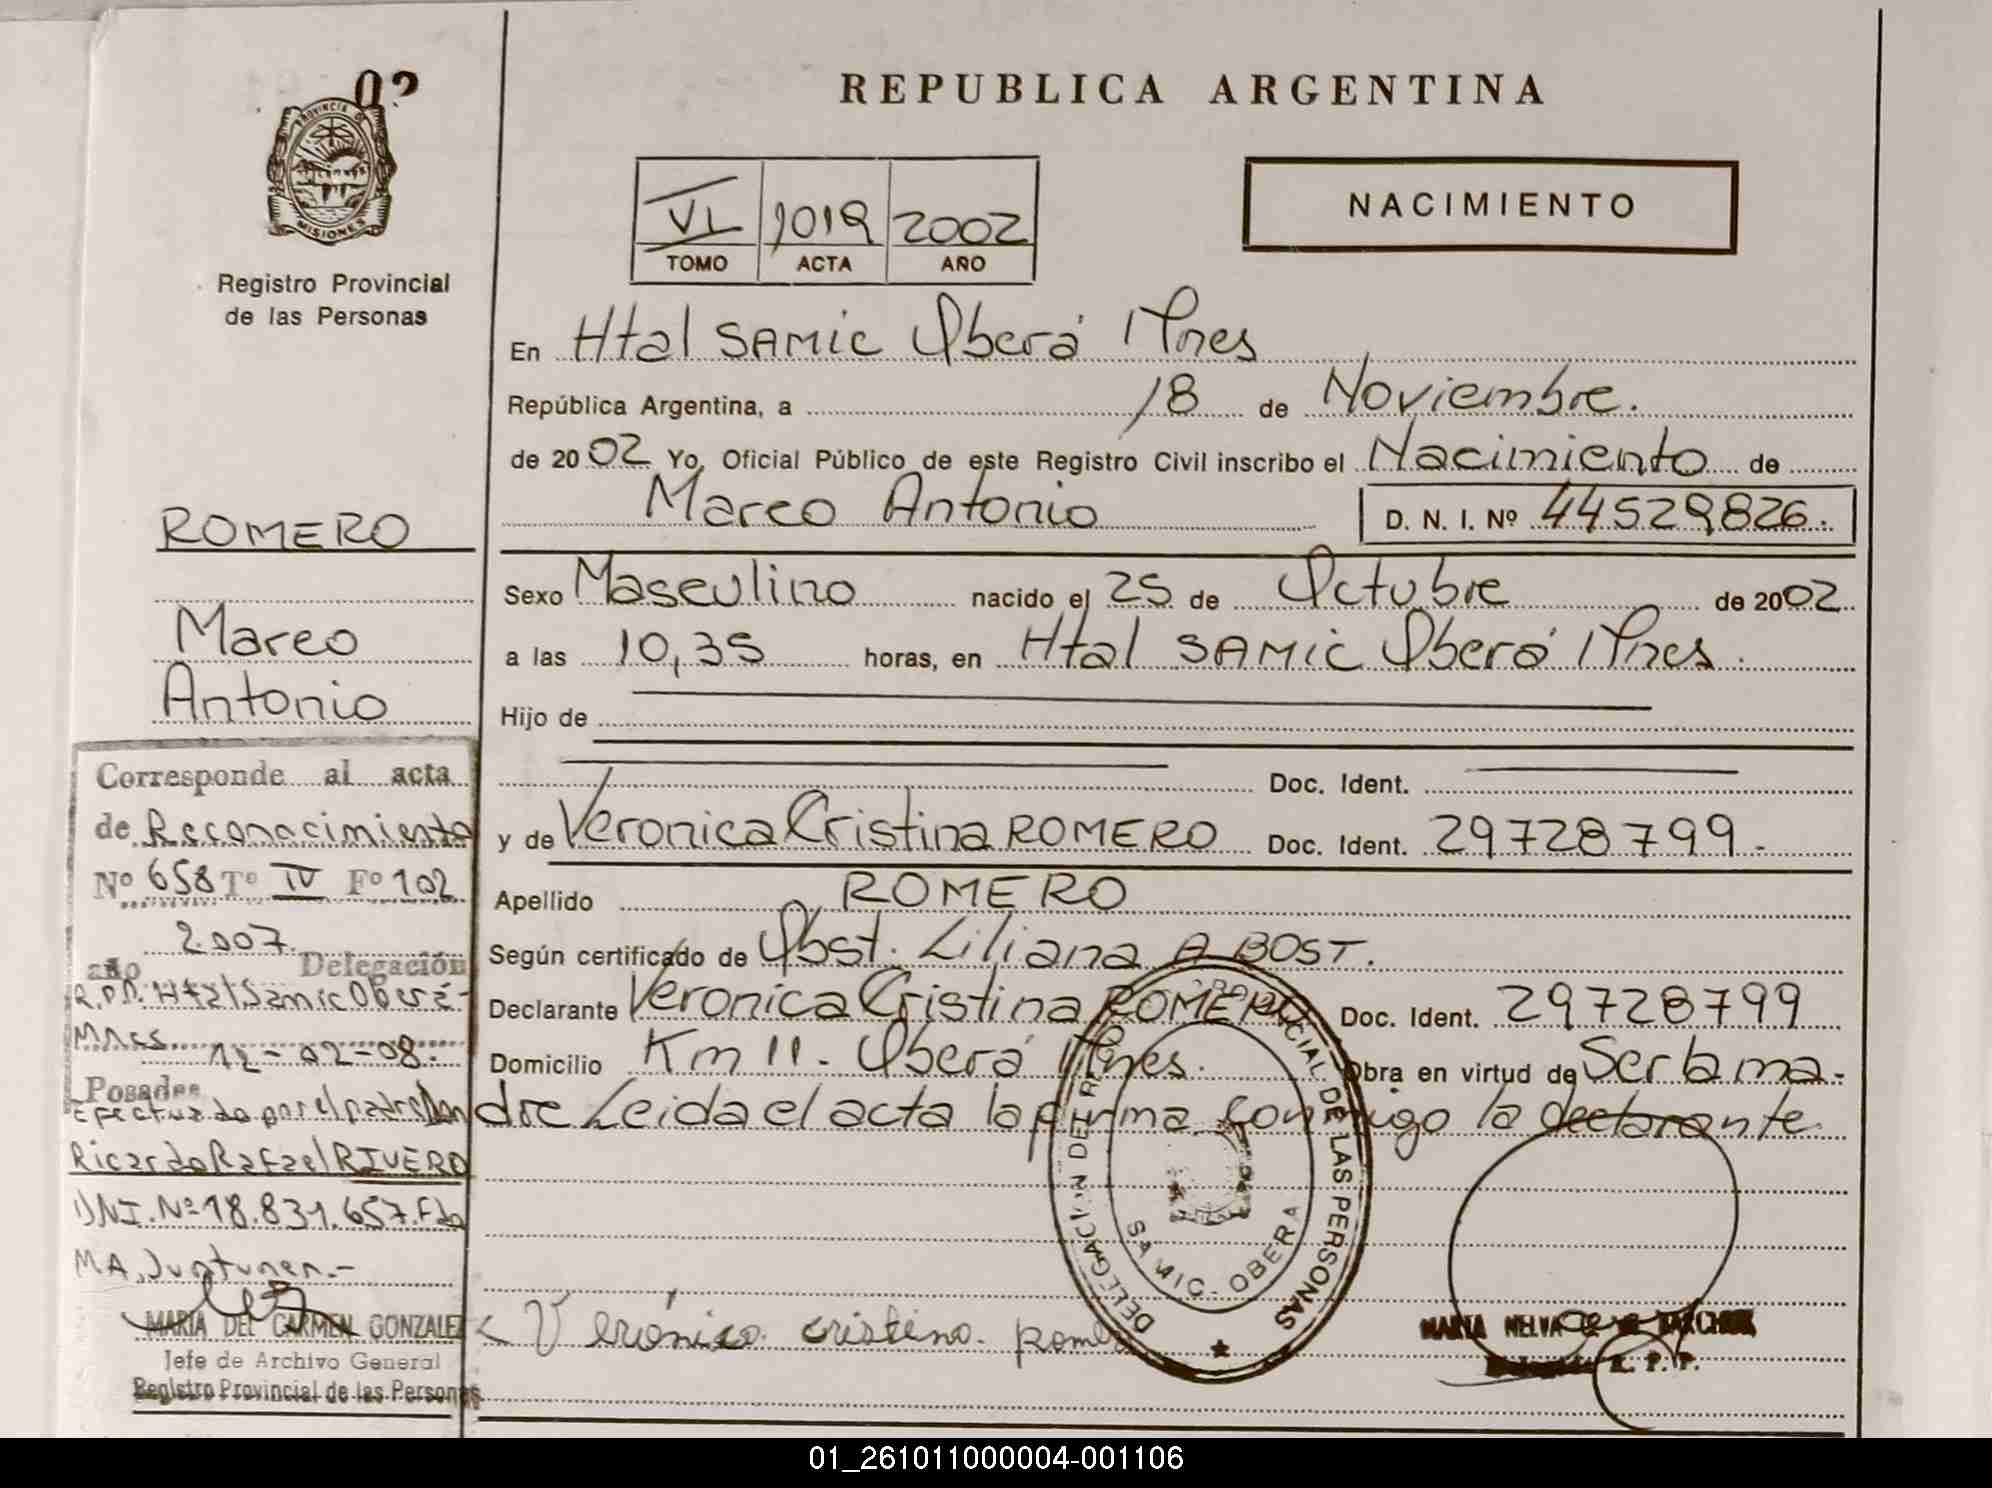 02
PROVINCIA DE
MISIONES
Registro Provincial
de las Personas
ROMERO
Marco
Antonio
Corresponde al acta
de Reconocimiento
Nº 658 Tº IV Fº 102
2.007
año Delegación
R.P.P. Htal Samic Oberá-
Mnes
12-02-08.
Posadas
Efectuado por el padre Don
Ricardo Rafael RIVERO
DNI. Nº 18.831.657. Fdo
MA.
MARIA DEL CARMEN GONZALEZ
Jefe de Archivo General
Registro Provincial de las Personas
REPUBLICA ARGENTINA
VI 1019 2002
TOMO ACTA AÑO
NACIMIENTO
En Htal SAMIC Oberá Mnes
República Argentina, a 18 de Noviembre.
de 2002 Yo, Oficial Público de este Registro Civil inscribo el Nacimiento de
Marco Antonio D. N. I. Nº 44529826.
Sexo Masculino nacido el 25 de Octubre de 2002
a las 10,35 horas, en Htal SAMIC Oberá Mnes.
Hijo de
Doc. Ident.
y de Veronica Cristina ROMERO Doc. Ident. 29728799.
Apellido ROMERO
Según certificado de Obst. Liliana A BOST.
Declarante Veronica Cristina ROMERO Doc. Ident. 29728799
Domicilio Km 11 - Oberá Mnes. Obra en virtud de Ser la ma-
dre Leida el acta la firma conmigo la declarante
DELEGACION DEL REG. PROVINCIAL DE LAS PERSONAS
SAMIC - OBERA
Verónica cristina romero
MARIA NELVA
R. P. P.
01_261011000004-001106